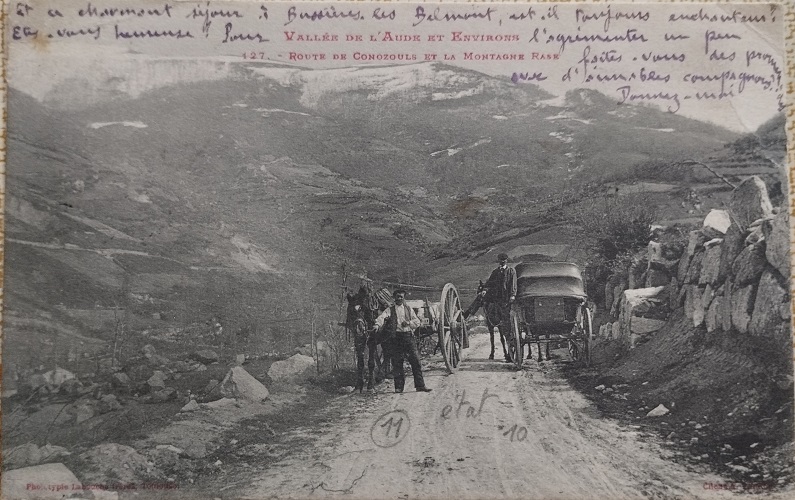 Et ce charmant séjour à Bussières les Belmont, est-il toujours enchanteur?
Etes-vous heureuse? Pour l'agrémenter un peu
VALLÉE DE L'AUDE ET ENVIRONS
127. - ROUTE DE CONOZOULS ET LA MONTAGNE RASE
faites-vous des promenades
avec d'aimables compagnons?
Donnez-moi
11
état
10
Phototypie Labouche frères, Toulouse